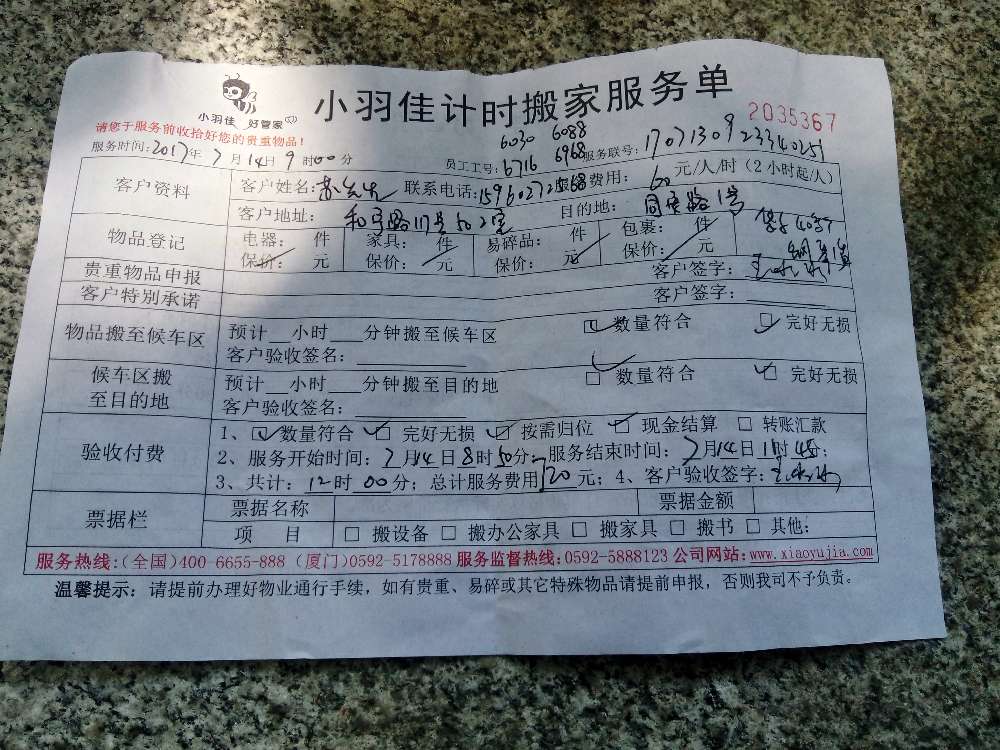 小羽佳 好管家
小羽佳计时搬家服务单
2035367
请您于服务前收拾好您的贵重物品!
服务时间:2017年7月14日9时00分
员工工号: 6030 6088
6716 6968
服务联号: 170713092334025
客户资料 客户姓名: 联系电话: 费用: 60 元/人/时(2小时起/人)
客户地址: 117号502室 目的地: 同安路1号
物品登记 电器: 件 家具: 件 易碎品: 件 包裹: 件
保价: 元 保价: 元 保价: 元 保价: 元
贵重物品申报 客户签字:
客户特别承诺 客户签字:
物品搬至候车区 预计__小时___分钟搬至候车区 数量符合 完好无损
客户验收签名:
候车区搬至目的地 预计__小时___分钟搬至目的地 数量符合 完好无损
客户验收签名:
验收付费 1、数量符合 完好无损 按需归位 现金结算 转账汇款
2、服务开始时间:7月14日8时50分; 服务结束时间:7月14日11时45分;
3、共计:12时00分; 总计服务费用720元; 4、客户验收签字:
票据栏 票据名称 票据金额
项 目 搬设备 搬办公家具 搬家具 搬书 其他:
服务热线:(全国)400-6655-888 (厦门)0592-5178888 服务监督热线:0592-5888123 公司网站:www.xiaoyujia.com
温馨提示:请提前办理好物业通行手续,如有贵重、易碎或其它特殊物品请提前申报,否则我司不予负责。